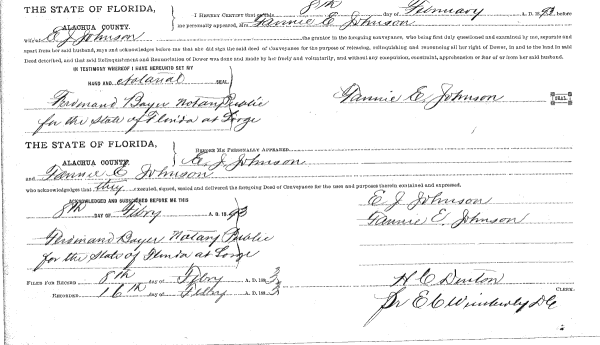 THE STATE OF FLORIDA,
ALACHUA COUNTY.
I HEREBY CERTIFY that on this 8th day of February A. D. 1893, before
me personally appeared, Mrs Fannie E Johnson
wife of E J Johnson the grantor in the foregoing conveyance, who being first duly questioned and examined by me, separate and
apart from her said husband, says and acknowledges before me that she did sign the said deed of Conveyance for the purpose of releasing, relinquishing and renouncing all her right of Dower, in and to the land in said
Deed described, and that said Relinquishment and Renunciation of Dower was done and made by her freely and voluntarily, and without any compulsion, constraint, apprehension or fear of or from her said husband.
IN TESTIMONY WHEREOF I HAVE HEREUNTO SET MY
HAND AND Notarial SEAL.
Ferdinand Bayer Notary Public
for the State of Florida at Large
Fannie E. Johnson SEAL.
THE STATE OF FLORIDA,
ALACHUA COUNTY.
BEFORE ME PERSONALLY APPEARED E. J. Johnson
and Fannie E Johnson
who acknowledges that they executed, signed, sealed and delivered the foregoing Deed of Conveyance for the uses and purposes therein contained and expressed.
ACKNOWLEDGED AND SUBSCRIBED BEFORE ME THIS
8th DAY OF Feby A. D. 1893
E J Johnson
Fannie E. Johnson
Ferdinand Bayer Notary Public
for the State of Florida at Large
FILED FOR RECORD 8th day of Feby A. D. 1893
RECORDED 16th day of Feby A. D. 1893
H C Denton
CLERK.
Pr E C Wimberly D C